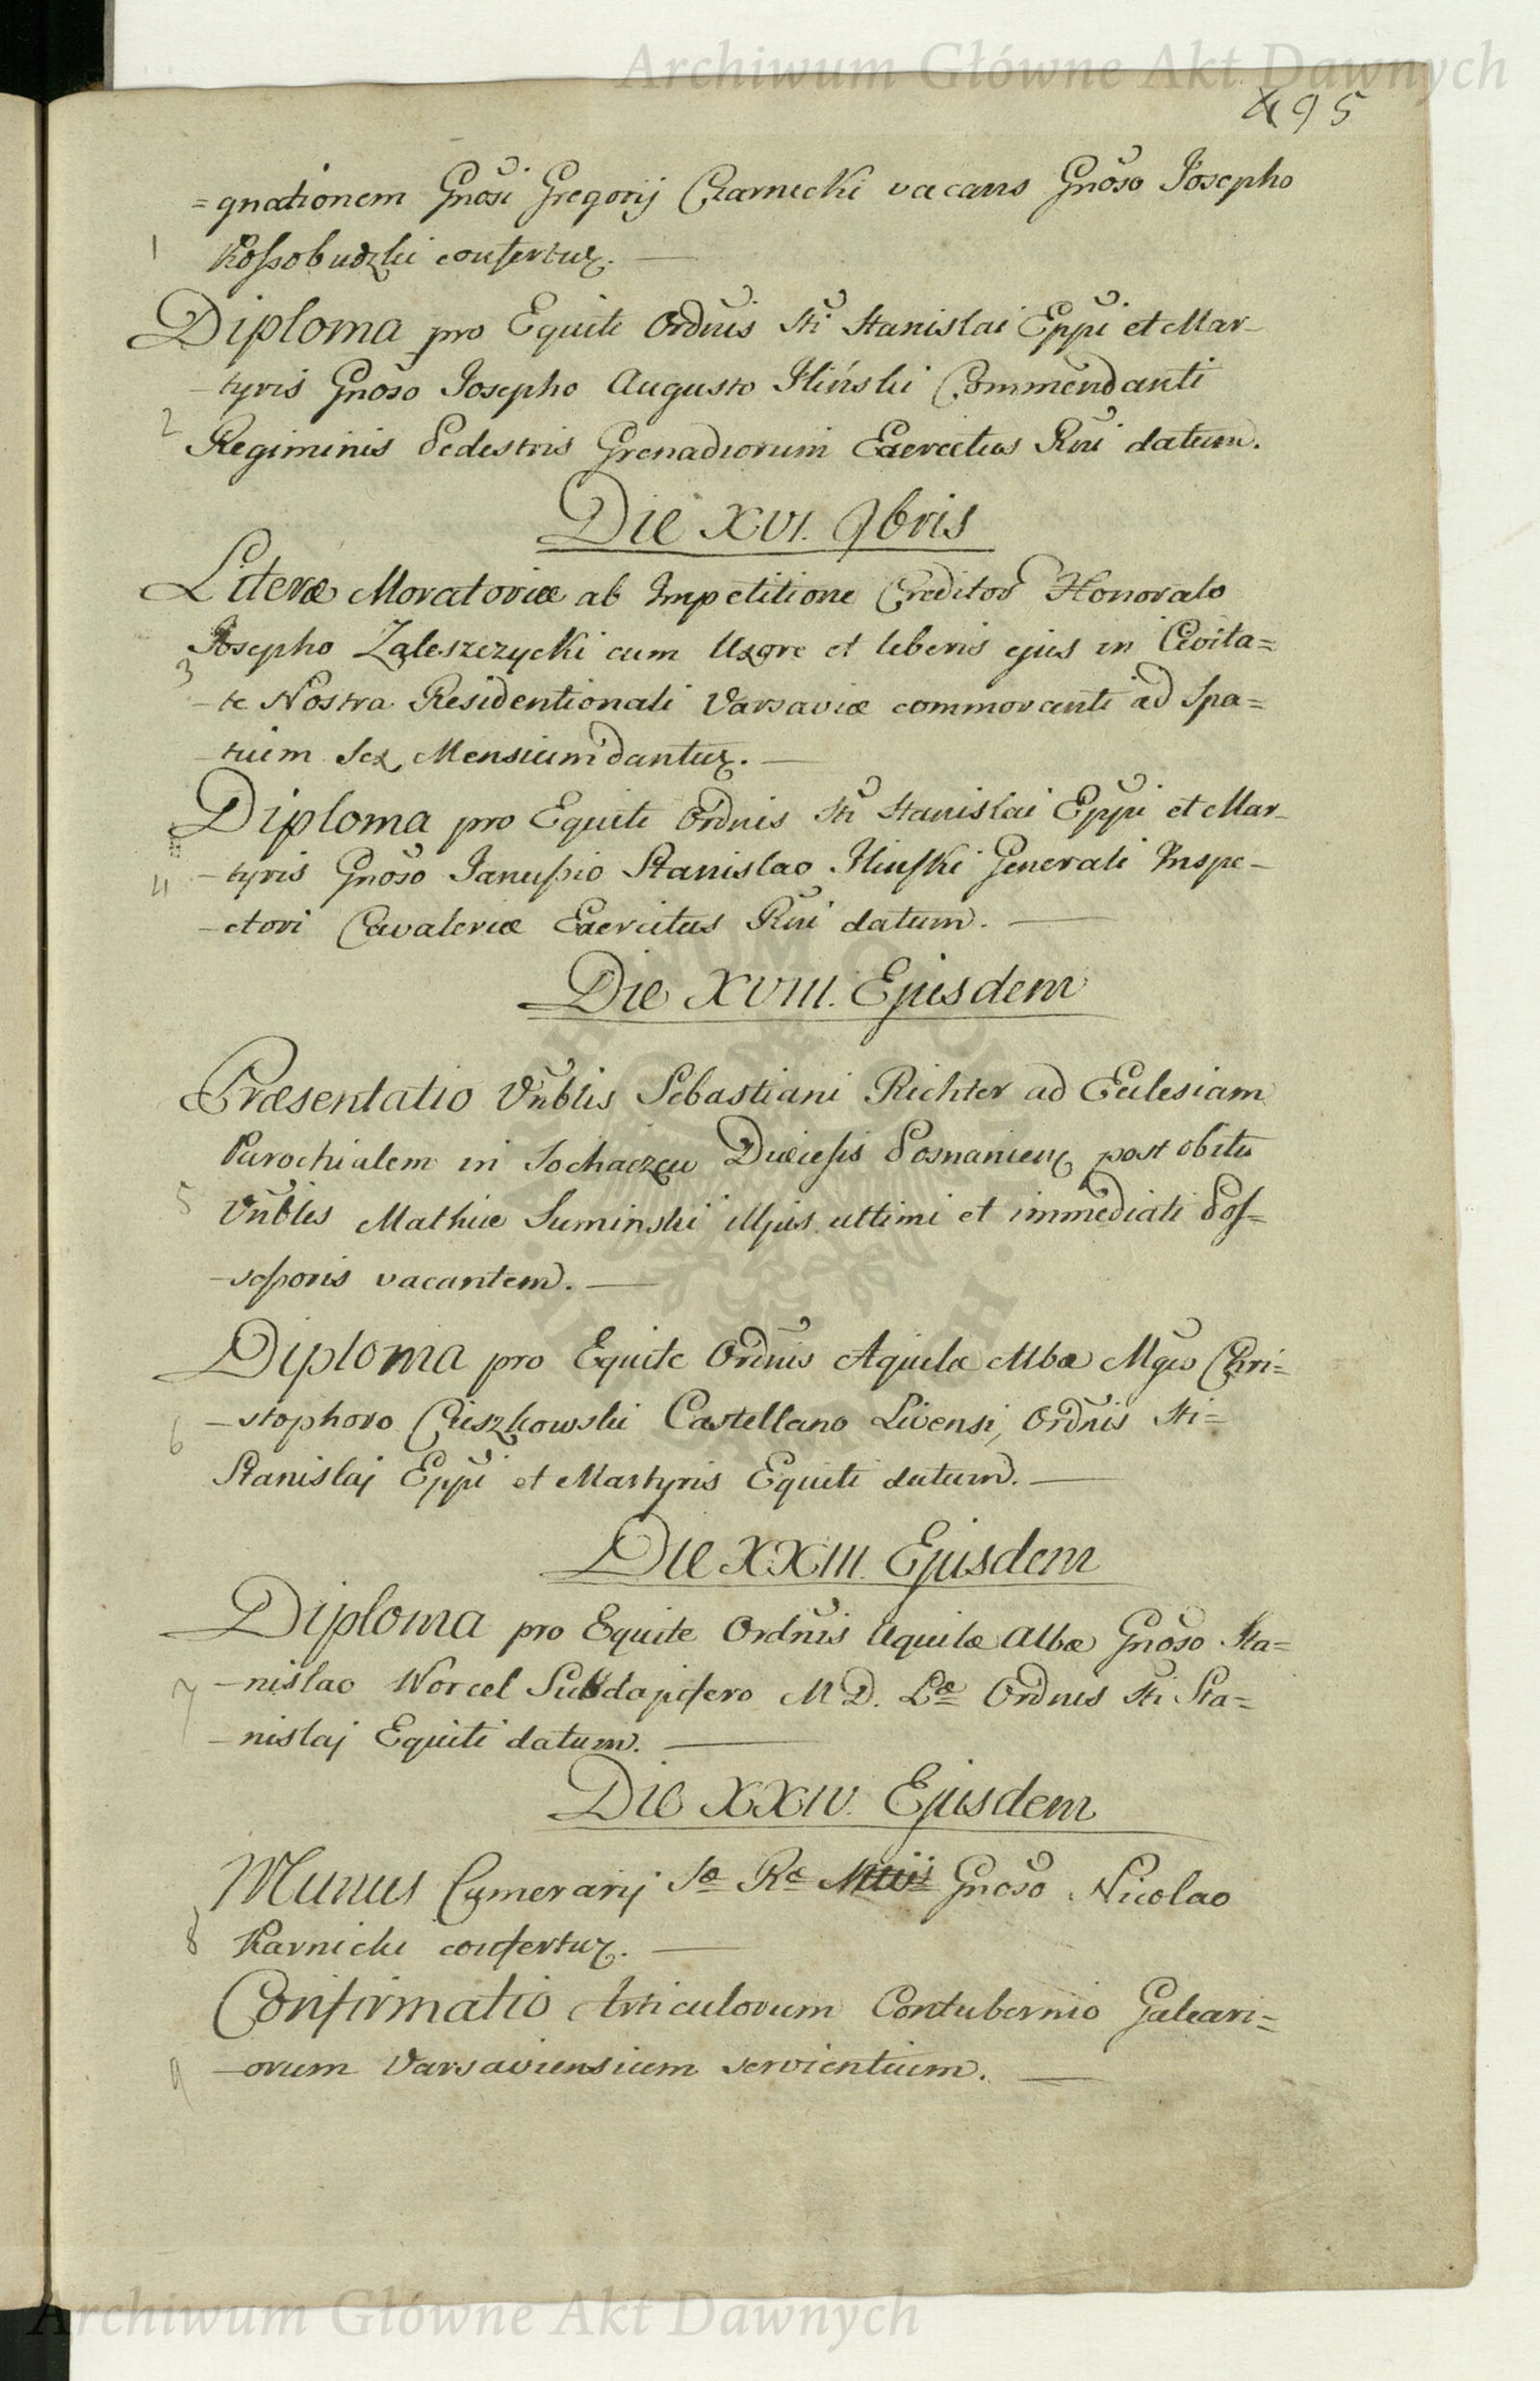 Archiwum Główne Akt Dawnych
495
=gnationem Gnosi Gregorij Czarnecki vacans Gnoso Josepho
1 Koſsobudzki confertur. —
Diploma pro Equite Ordnis Sti Stanislai Eppi et Mar-
-tyris Gnoso Josepho Augusto Iliński Commendanti
2 Regiminis Pedestris Grenadiorum Exercitus Rni datum.
Die XVI. 9bris
Literæ Moratoriæ ab Impetitione Creditor Honorato
Josepho Zaleszczycki cum Uxore et liberis ejus in Civita=
3 -te Nostra Residentionali Varsaviæ commoranti ad Spa=
-tium Sex Mensium dantur. —
Diploma pro Equite Ordnis Sti Stanislai Eppi et Mar-
4 -tyris Gnoso Januſsio Stanislao Ilinſki Generali Inspe-
-ctori Cavaleriæ Exercitus Rni datum. —
Die XVIII. Ejusdem
Præsentatio Vnblis Sebastiani Richter ad Ecclesiam
Parochialem in Sochaczew Diæcesis Posnanien, post obitu
5 Vnblis Mathiæ Suminski illjus ultimi et immediati Poſ=
-seſsoris vacantem. —
Diploma pro Equite Ordnis Aquilæ Albæ Mgco Chri=
6 -stophoro Cieszkowski Castellano Livensi, Ordnis Sti=
Stanislaj Eppi et Martyris Equiti datum. —
Die XXIII. Ejusdem
Diploma pro Equite Ordnis Aquilæ Albæ Gnoso Sta=
7 -nislao Worcel Subdapifero M D. Læ Ordnis Sti Sta=
-nislaj Equiti datum. —
Die XXIV. Ejusdem
Munus Camerarij Sæ Ræ Mttis Gnoso Nicolao
8 Karnicki confertur. —
Confirmatio Articulorum Contubernio Galeari=
9 -orum Varsaviensium servientium. —
Archiwum Główne Akt Dawnych